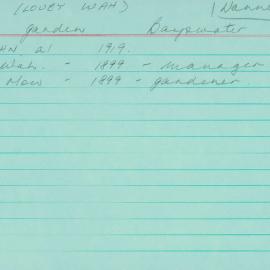 (LOUEY WAH)
garden Bayswater
HN. al 1919.
Wah. - 1899 - manager
Mow - 1899 - gardener.